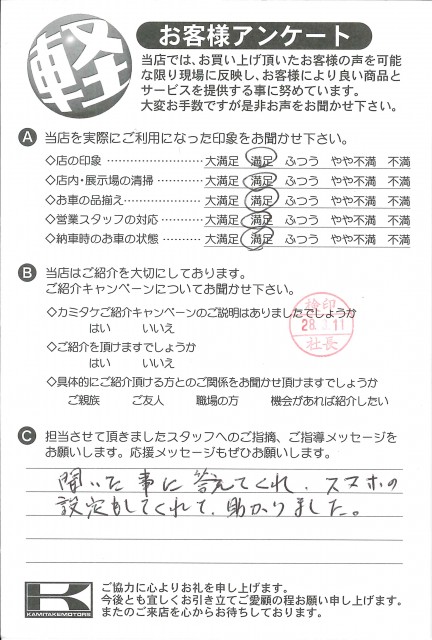 軽
お客様アンケート
当店では、お買い上げ頂いたお客様の声を可能
な限り現場に反映し、お客様により良い商品と
サービスを提供する事に努めています。
大変お手数ですが是非お声をお聞かせ下さい。
A 当店を実際にご利用になった印象をお聞かせ下さい。
◇店の印象 ………………… 大満足 満足 ふつう やや不満 不満
◇店内・展示場の清掃………… 大満足 満足 ふつう やや不満 不満
◇お車の品揃え……………… 大満足 満足 ふつう やや不満 不満
◇営業スタッフの対応………… 大満足 満足 ふつう やや不満 不満
◇納車時のお車の状態………… 大満足 満足 ふつう やや不満 不満
B 当店はご紹介を大切にしております。
ご紹介キャンペーンについてお聞かせ下さい。
◇カミタケご紹介キャンペーンのご説明はありましたでしょうか
はい いいえ
検印
28 11
社長
◇ご紹介を頂けますでしょうか
はい いいえ
◇具体的にご紹介頂ける方とのご関係をお聞かせ頂けますでしょうか
ご親族 ご友人 職場の方 機会があれば紹介したい
C 担当させて頂きましたスタッフへのご指摘、ご指導メッセージを
お願いします。応援メッセージもぜひお願いします。
聞いた事に答えてくれ、スマホの
設定もしてくれて、助かりました。
K
KAMITAKEMOTORS
ご協力に心よりお礼を申し上げます。
今後とも宜しくお引き立てご愛顧の程お願い申し上げます。
またのご来店を心からお待ちしております。